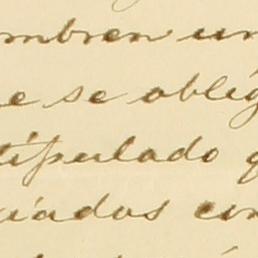 mbren un
e se oblig
tipulado q
iados en